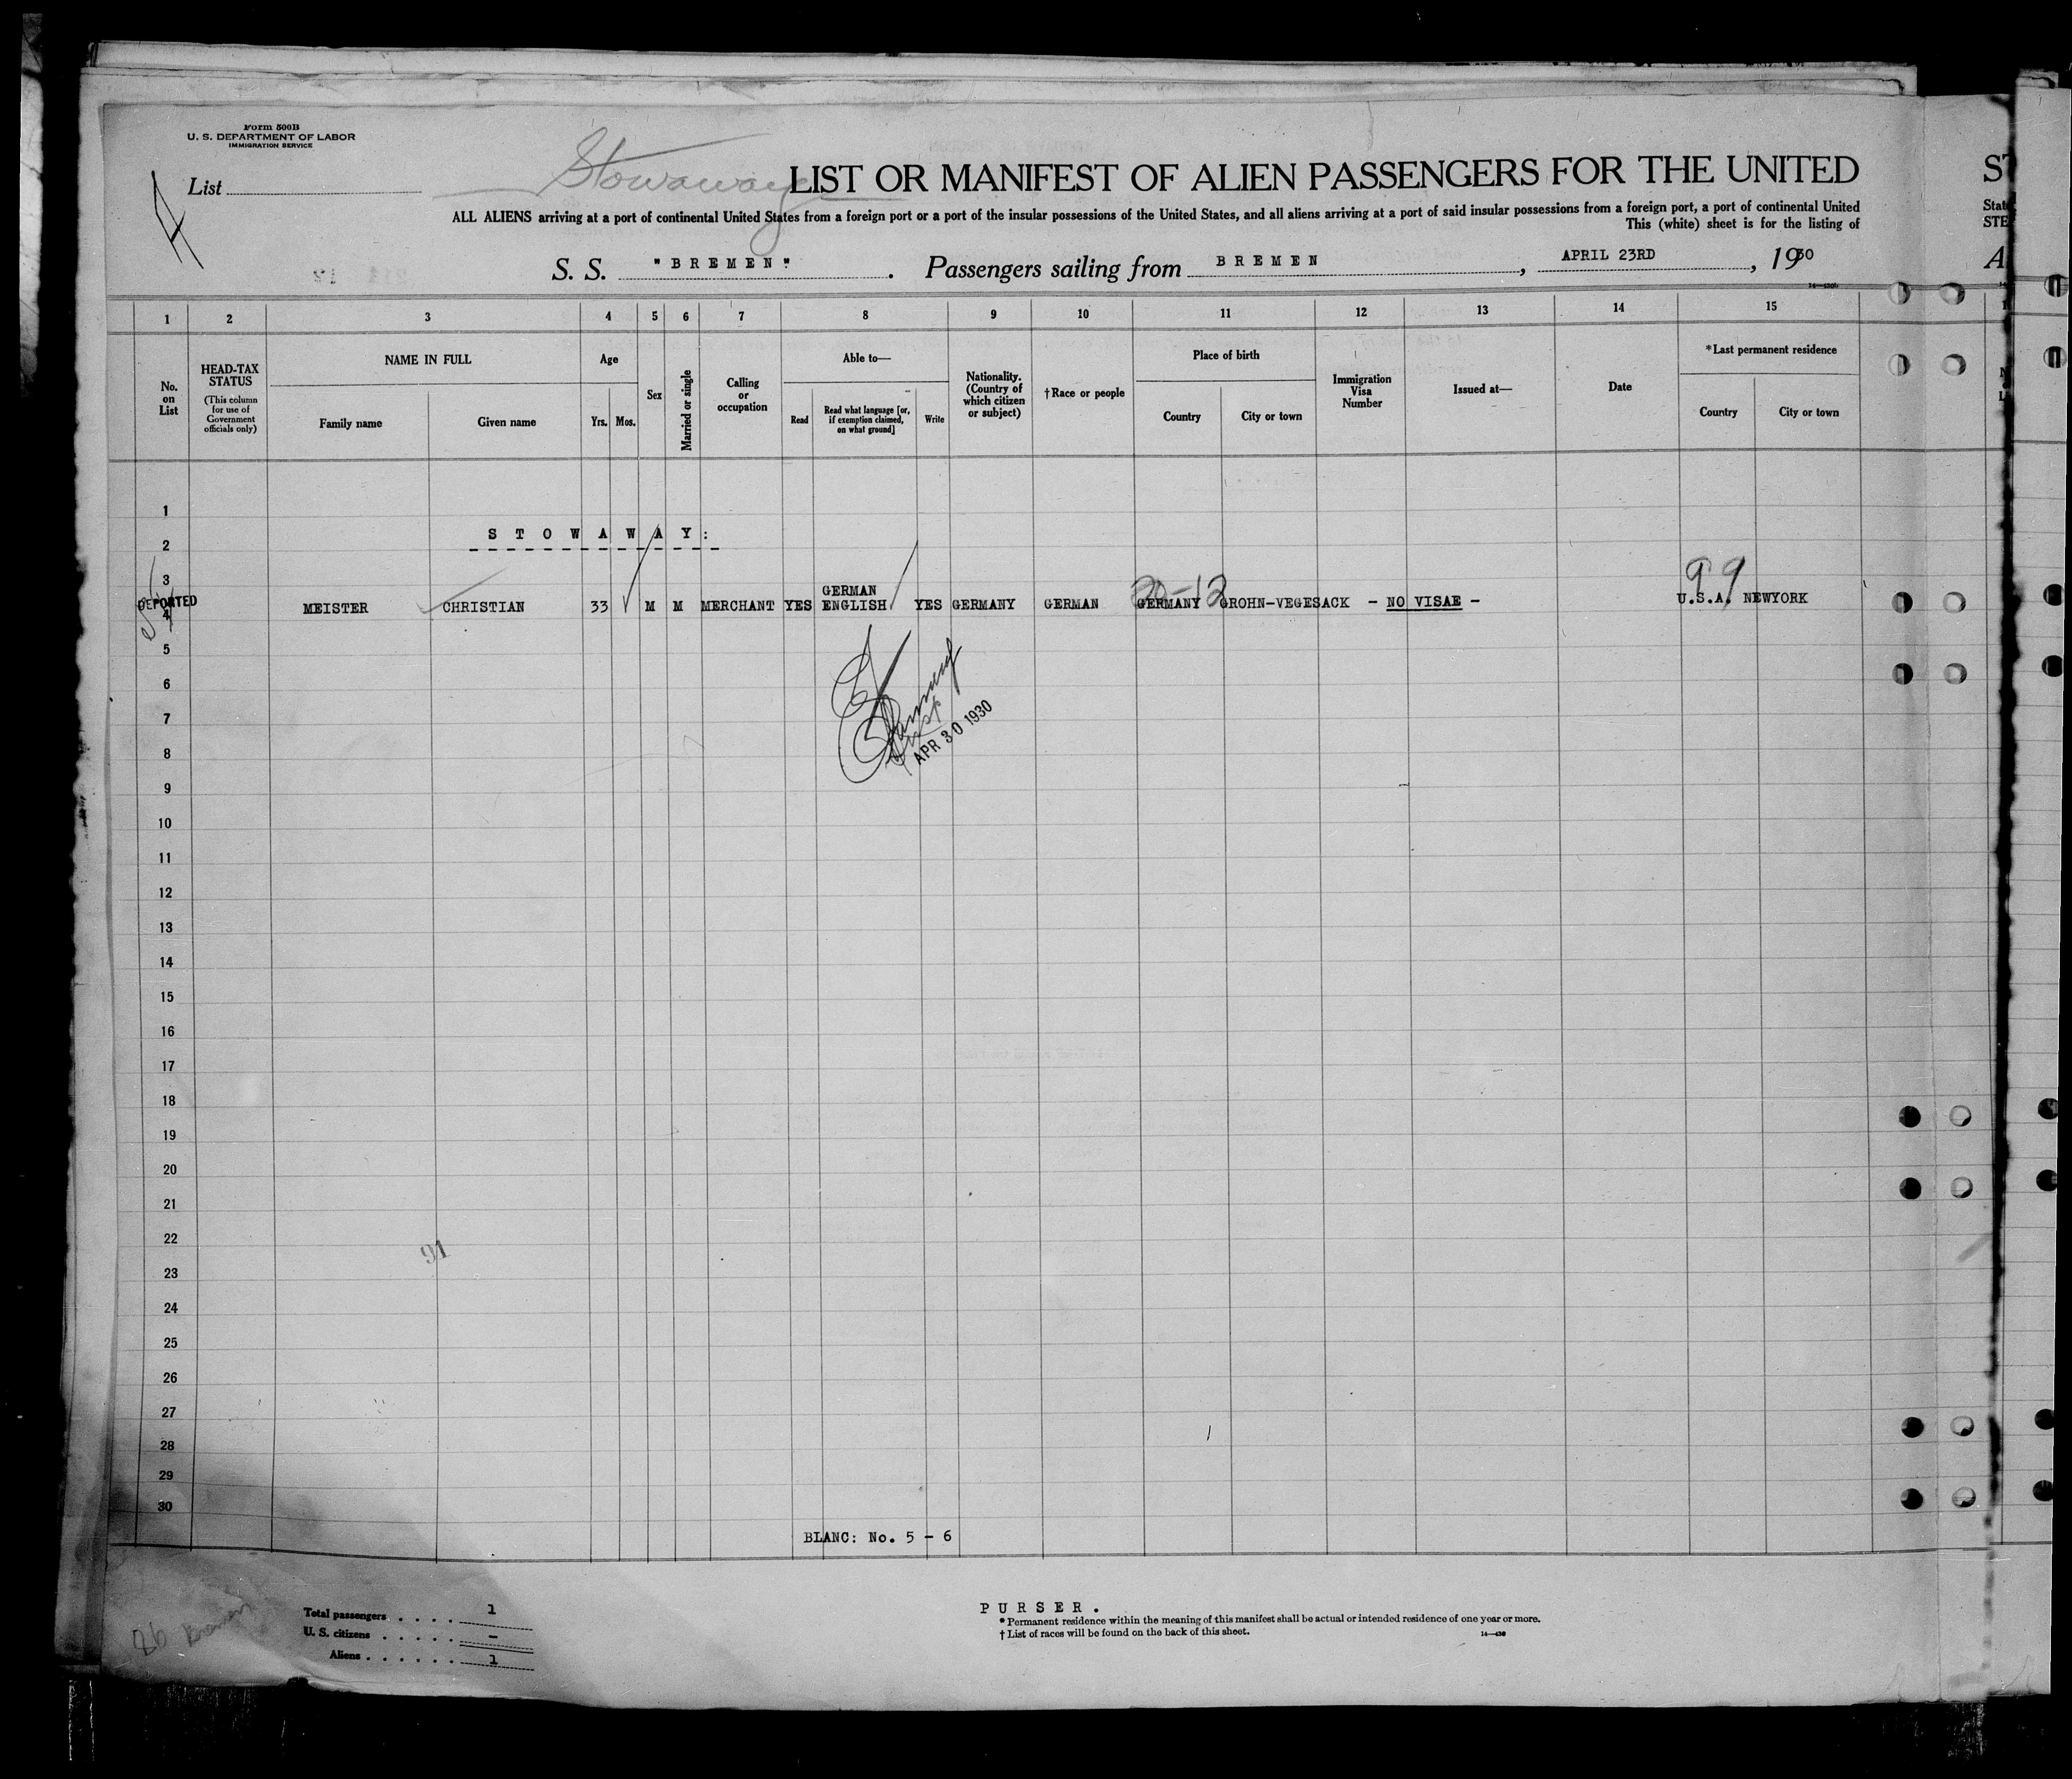 Form 500B
U. S. DEPARTMENT OF LABOR
IMMIGRATION SERVICE
List
Stowaway
LIST OR MANIFEST OF ALIEN PASSENGERS FOR THE UNITED
ALL ALIENS arriving at a port of continental United States from a foreign port or a port of the insular possessions of the United States, and all aliens arriving at a port of said insular possessions from a foreign port, a port of continental United
This (white) sheet is for the listing of
S. S. "BREMEN". Passengers sailing from BREMEN, APRIL 23RD, 1930
ST
State
STE
A
1 2 3 4 5 6 7 8 9 10 11 12 13 14 15
No. on List
HEAD-TAX STATUS
(This column for use of Government officials only)
NAME IN FULL
Family name
Given name
Age
Yrs. Mos.
Sex
Married or single
Calling or occupation
Able to—
Read
Read what language [or, if exemption claimed, on what ground]
Write
Nationality. (Country of which citizen or subject)
†Race or people
Place of birth
Country
City or town
Immigration Visa Number
Issued at—
Date
*Last permanent residence
Country
City or town
1
STOWAWAY:
2
3
99
20-12
GERMAN
DEPORTED 4 MEISTER CHRISTIAN 33 M M MERCHANT YES ENGLISH YES GERMANY GERMAN GERMANY GROHN-VEGESACK - NO VISAE - U.S.A. NEWYORK
5
6
7
APR 30 1930
8
9
10
11
12
13
14
15
16
17
18
19
20
21
22
91
23
24
25
26
27
28
29
30
BLANC: No. 5 - 6
Total passengers . . . . 1
U. S. citizens . . . . . -
Aliens . . . . . . 1
PURSER.
* Permanent residence within the meaning of this manifest shall be actual or intended residence of one year or more.
† List of races will be found on the back of this sheet.
26 Bremen